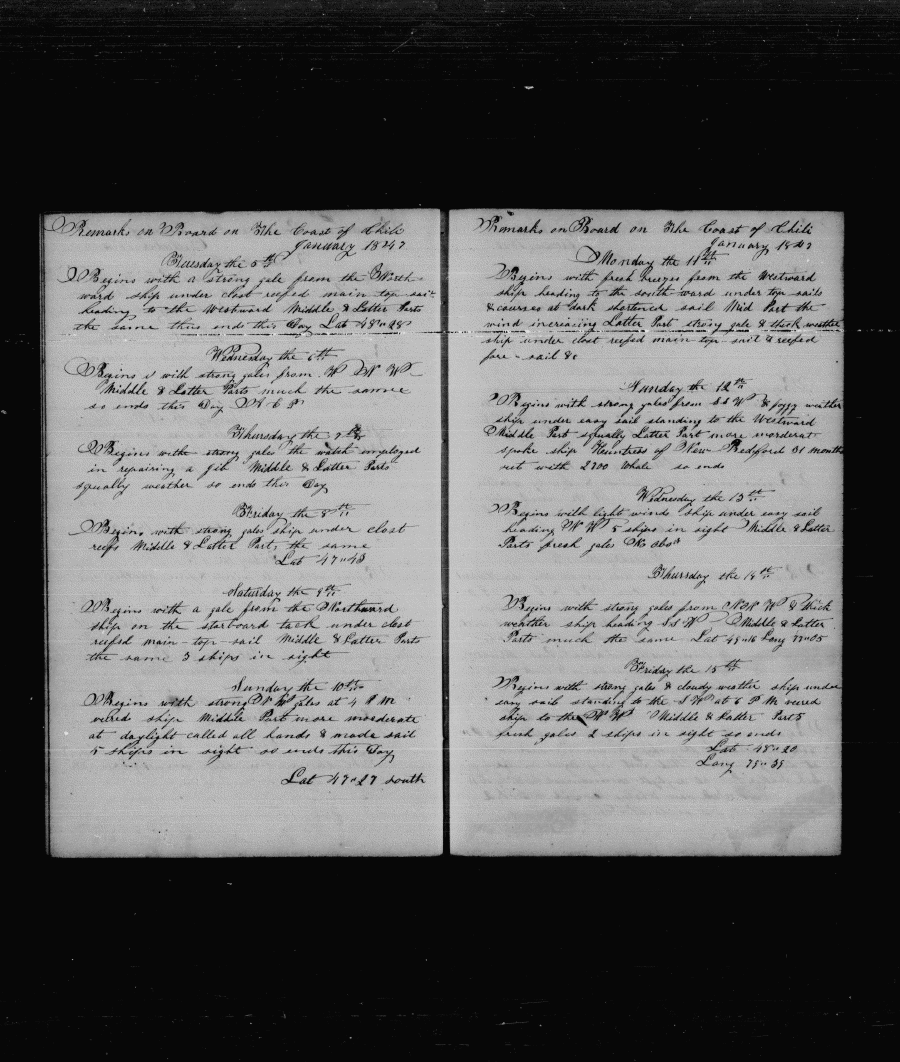 Remarks on Board on The Coast of Chili
January 1847
Tuesday the 5th
Begins with a strong gale from the North
ward ship under clost reefed main top sail
heading to the Westward Middle & Latter Parts
the same thus ends this Day Lat 48"28
Wednesday the 6th
Begins s with strong gales from W N W
Middle & Latter Parts much the same
so ends this Day
Thursday the 7th
Begins with strong gales the watch employed
in repairing a jib Middle & Latter Parts
squally weather so ends this Day
Friday the 8th
Begins with strong gales ship under clost
reefs Middle & Latter Parts the same
Lat 47"43
Saturday the 9th
Begins with a gale from the Northward
ship on the starboard tack under clost
reefed main top sail Middle & Latter Parts
the same 3 ships in sight
Sunday the 10th
Begins with strong N W gales at 4 P M
vered ship Middle Part more morderate
at daylight called all hands & made sail
5 ships in sight so ends this Day
Lat 47"27 south
Remarks on Board on The Coast of Chili
January 1847
Monday the 11th
Begins with fresh breezes from the Westward
ship heading to the south ward under top sails
& courses at dark shortened sail Mid Part the
wind increasing Latter Part strong gale & thick weather
ship under clost reefed main top sail & reefed
fore sail &c
Tunday the 12th
Begins with strong gales from S S W & foggy weather
ship under easy sail standing to the Westward
Middle Part squally Latter Part more morderat
spoke ship Huntress of New Bedford 31 months
out with 2700 whale so ends
Wednesday the 13th
Begins with light winds ship under easy sail
heading N W 5 ships in sight Middle & Latter
Parts fresh gales No Obs
Thursday the 14th
Begins with strong gales from N N W & thick
weather ship heading S S W Middle & Latter
Parts much the same Lat 49"16 Long 77"05
Friday the 15th
Begins with strong gales & cloudy weather ship under
easy sail standing to the S W at 6 P M vered
ship to the N W Middle & Latter Parts
fresh gales 2 ships in sight so ends
Lat 48"20
Long 79"39